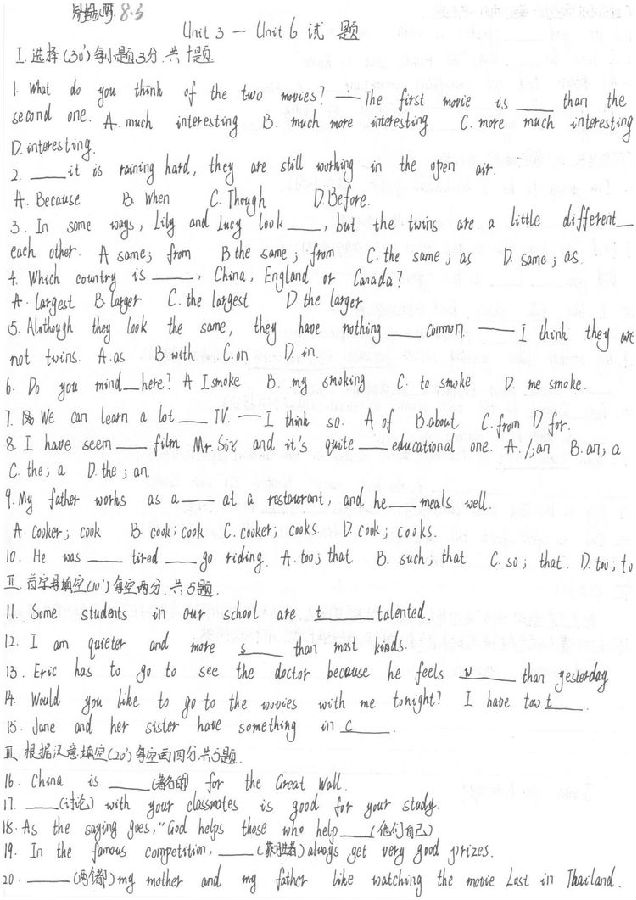 8.3
Unit 3 — Unit 6 试 题
I. 选择(30')每小题3分,共10题
1. What do you think of the two movies? — The first movie is ____ than the
second one. A. much interesting B. much more interesting C. more much interesting
D. interesting.
2. ____ it is raining hard, they are still working in the open air.
A. Because B. When C. Though D. Before.
3. In some ways, Lily and Lucy look ____, but the twins are a little different ____
each other. A same; from B the same; from C. the same; as D. same; as.
4. Which country is ____, China, England or Canada?
A. largest B larger C. the largest D the larger
5. Although they look the same, they have nothing ____ common. — I think they are
not twins. A. as B. with C. on D. in.
6. Do you mind ____ here? A I smoke B. my smoking C. to smoke D. me smoke.
7. We can learn a lot ____ TV. — I think so. A of B. about C. from D for.
8. I have seen ____ film Mr. Six and it's quite ____ educational one. A. /; an B. an; a
C. the; a D. the; an
9. My father works as a ____ at a restaurant, and he ____ meals well.
A cooker; cook B. cook; cook C. cooker; cooks. D. cook; cooks.
10. He was ____ tired ____ go riding. A. too; that. B. such; that C. so; that. D. too; to
II. 首字母填空(10')每空两分,共5题.
11. Some students in our school are t____ talented.
12. I am quieter and more s____ than most kinds.
13. Eric has to go to see the doctor because he feels w____ than yesterday
14. Would you like to go to the movies with me tonight? I have two t____.
15. Jane and her sister have something in c____.
III. 根据汉意填空(20')每空四分,共5题.
16. China is ____ (著名的) for the Great Wall.
17. ____ (讨论) with your classmates is good for your study.
18. As the saying goes, "God helps those who help ____ (他们自己)
19. In the famous competition, ____ (获胜者) always get very good prizes.
20. ____ (两个都) my mother and my father like watching the movie Lost in Thailand.